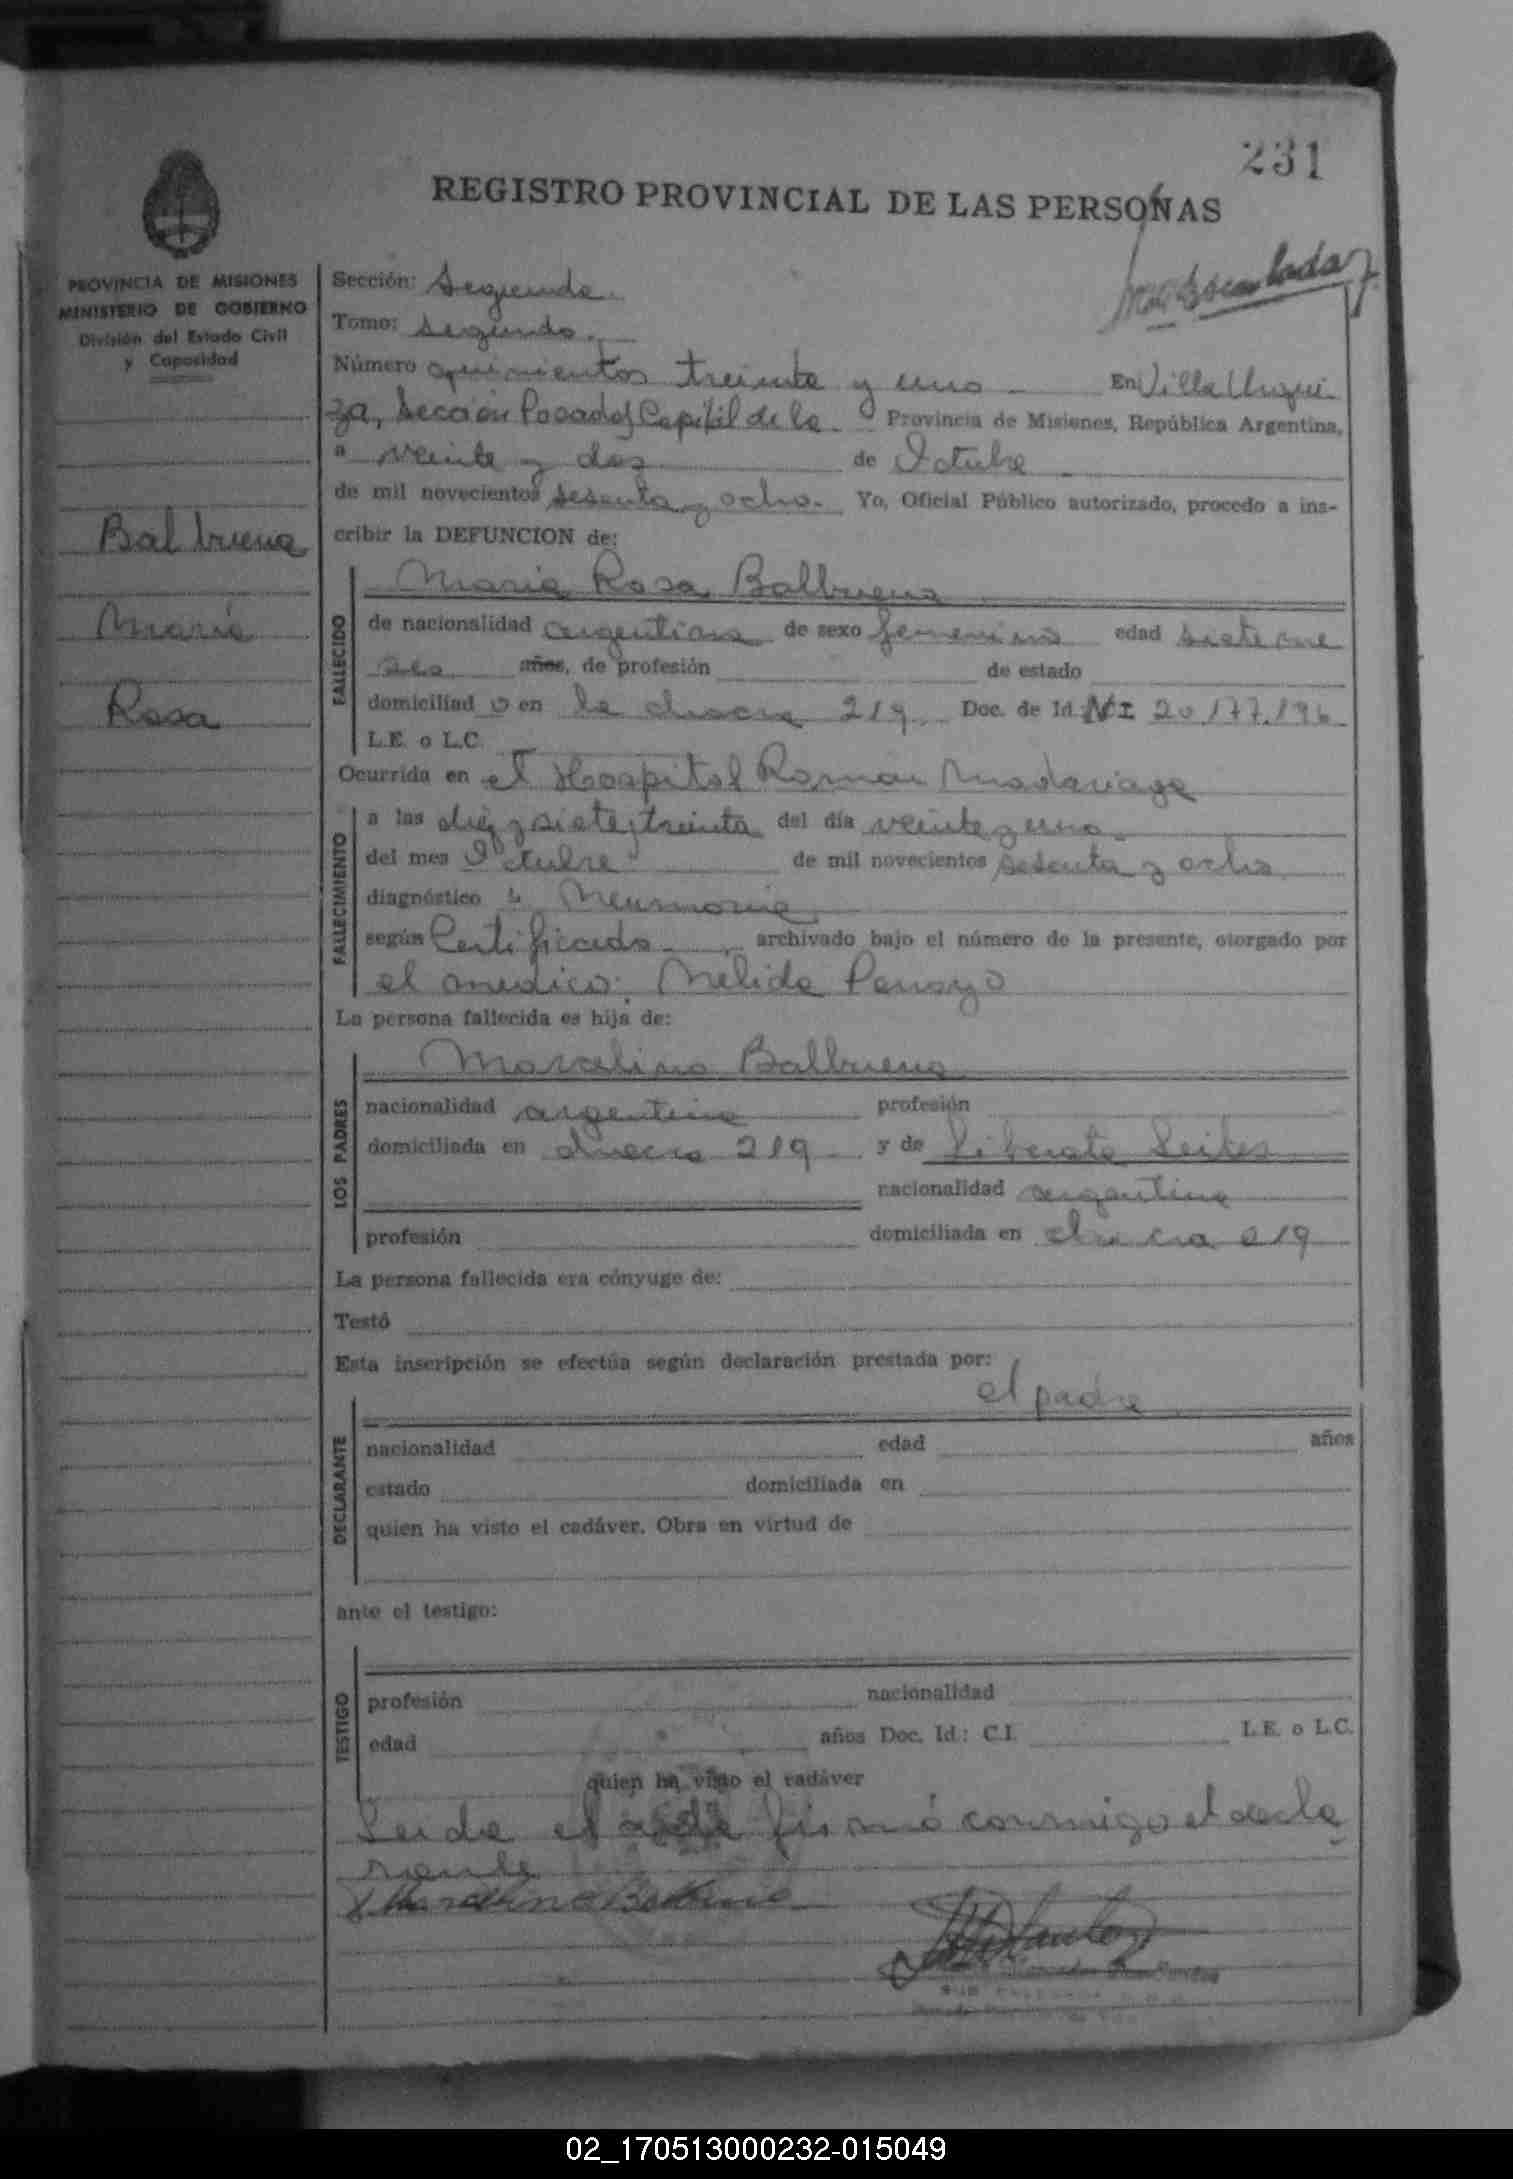 231
REGISTRO PROVINCIAL DE LAS PERSONAS
PROVINCIA DE MISIONES
MINISTERIO DE GOBIERNO
División del Estado Civil
y Capacidad
Balbuena
María
Rosa
Sección: Segunda.
Tomo: Segundo.
Número quinientos treinta y uno En Villa Urqui
za, Sección Posadas Capital de la Provincia de Misiones, República Argentina,
a veinte y dos de Octubre
de mil novecientos sesenta y ocho. Yo, Oficial Público autorizado, procedo a ins-
cribir la DEFUNCION de:
Maria Rosa Balbuena
FALLECIDO
de nacionalidad argentina de sexo femenino edad siete me
ses años, de profesión de estado
domiciliad o en la chacra 219 Doc. de Id: NI 20.177.196
L.E. o L.C.
Ocurrida en el Hospital Ramón Madariaga
FALLECIMIENTO
a las diez y siete y treinta del día veinte y uno
del mes Octubre de mil novecientos sesenta y ocho
diagnóstico Neumonia
según Certificado archivado bajo el número de la presente, otorgado por
el medico: Nelida Penayo
La persona fallecida es hija de:
LOS PADRES
Marcelino Balbuena
nacionalidad argentina profesión
domiciliada en chacra 219 y de Liberata Leites
nacionalidad argentina
profesión domiciliada en chacra 219
La persona fallecida era cónyuge de:
Testó
Esta inscripción se efectúa según declaración prestada por:
el padre
DECLARANTE
nacionalidad edad años
estado domiciliada en
quien ha visto el cadáver. Obra en virtud de
ante el testigo:
TESTIGO
profesión nacionalidad
edad años Doc. Id.: C.I. L.E. o L.C.
quien ha visto el cadáver
Leida el acta firmó conmigo el decla
rante
Marcelino Balbuena
02_170513000232-015049